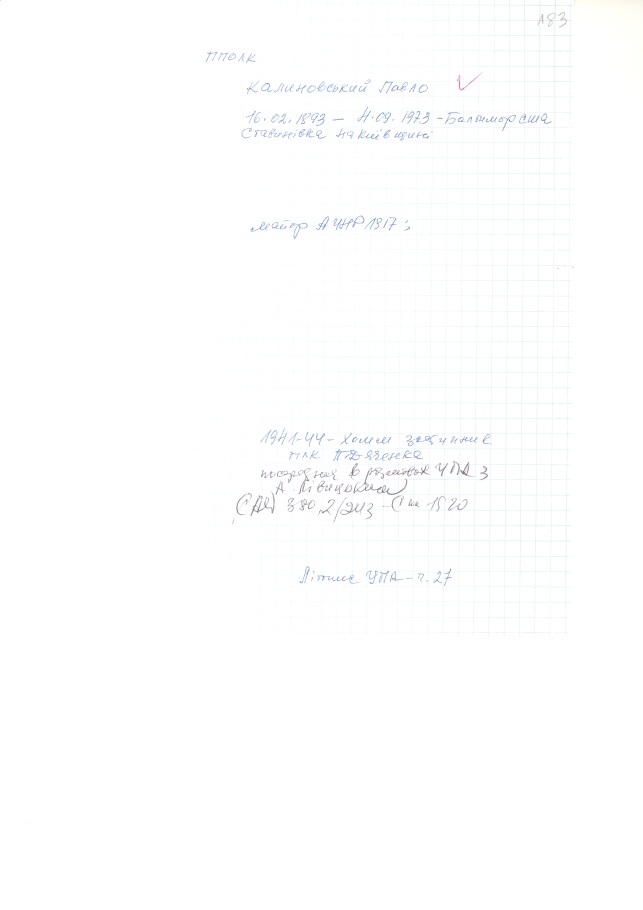 183
ППОЛК
Калиновський Павло
16.02.1893 – 4.09.1973 - Балтимор сша
Ставинівка на Київщині
майор А УНР 1917;
1941-44 - Холм заступник
плк П Дяченка
посередник в розмовах УПА з
А. Лівицьким
380, 2/ - 1920
Літопис УПА - т. 27